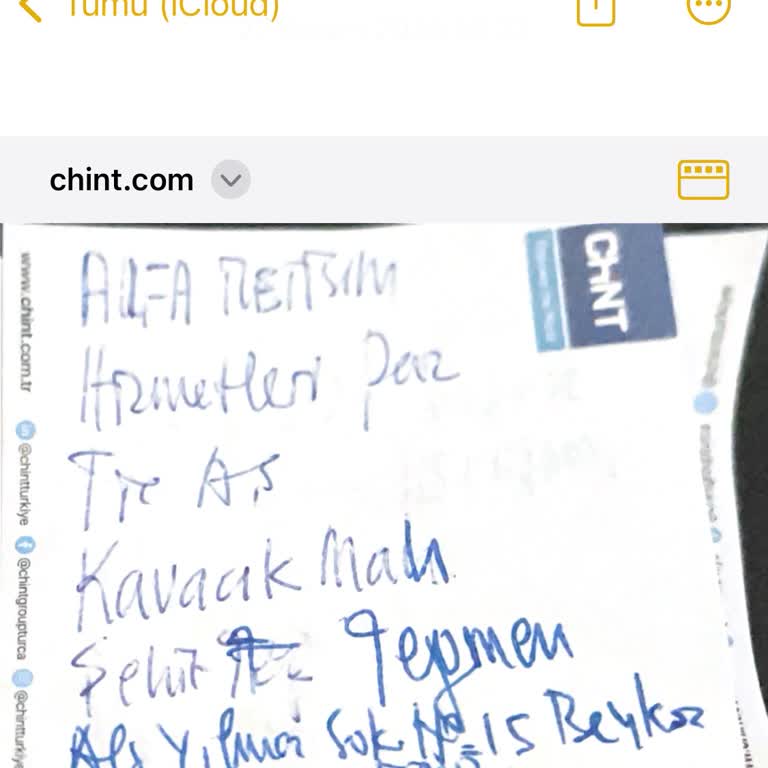 Tümü (iCloud)
chint.com
CHNT
www.chint.com.tr
@chintturkiye
@chintgroupturca
@chintturkiye
ALFA İLETİŞİM
Hizmetleri Paz
Tic A.Ş
Kavacık Mah.
Şehit Teğmen
Ali Yılmaz Sok No=15 Beykoz